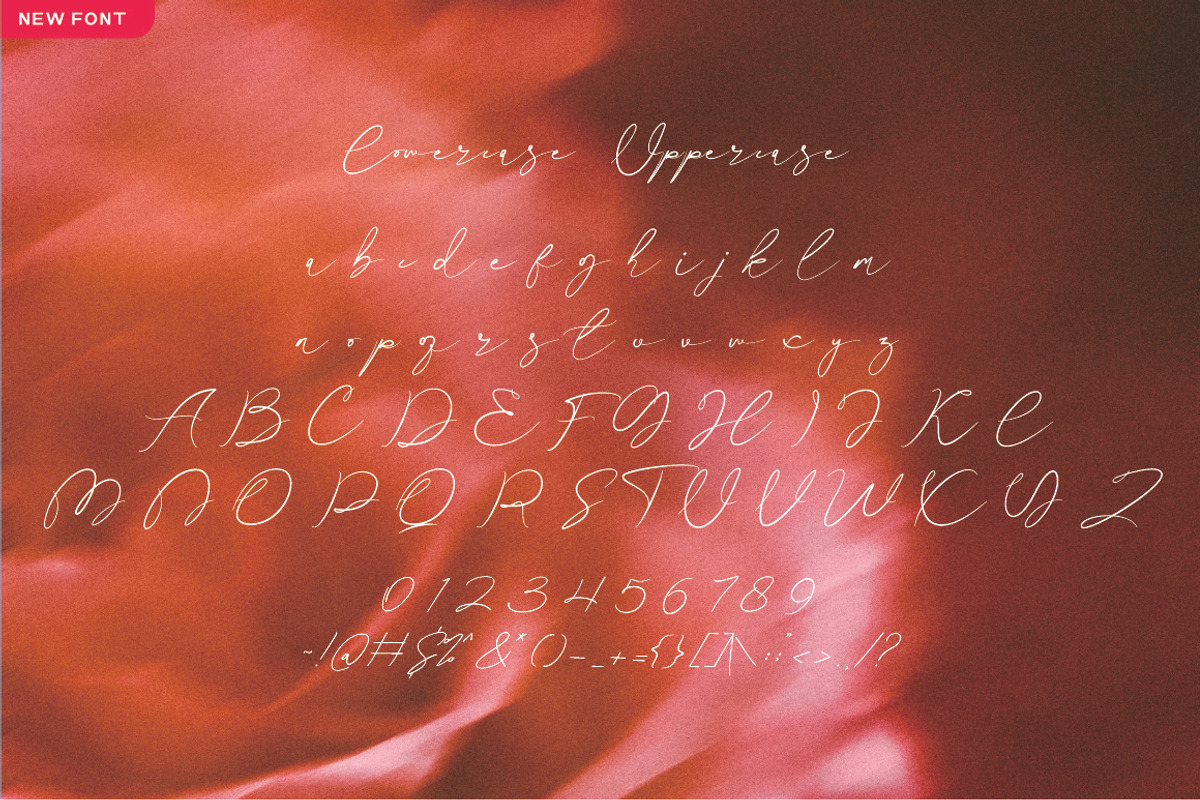 NEW FONT
Lowercase Uppercase
a b c d e f g h i j k l m
n o p q r s t u v w x y z
A B C D E F G H I J K L
M N O P Q R S T U V W X Y Z
0 1 2 3 4 5 6 7 8 9
~!@#$%^&*()-_+={}[]|\:;"<>.,/?